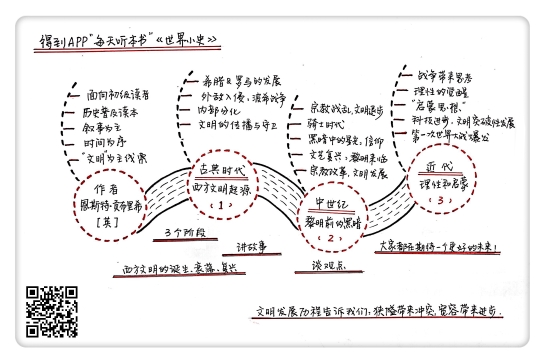 得到APP"每天听本书"《世界小史》
面向初级读者
历史普及读本
叙事为主
时间为序
"文明"为主线索
作者
恩斯特·贡布里希
[英]
希腊&罗马的发展
外敌入侵：波希战争
内部分化
文明的传播与守卫
古典时代
西方文明起源
(1)
宗教战乱，文明退步
骑士时代
黑暗中的星光，信仰
文艺复兴：黎明来临
宗教改革，文明发展
中世纪
黎明前的黑暗
(2)
战争带来思考
理性的觉醒
"启蒙思想"
科技进步：文明突破性发展
第一次世界大战爆发
近代
理性和启蒙
(3)
3个阶段
讲故事
谈观点
西方文明的诞生、衰落、复兴
大家都在期待一个更好的未来！
文明发展历程告诉我们：狭隘带来冲突，宽容带来进步.